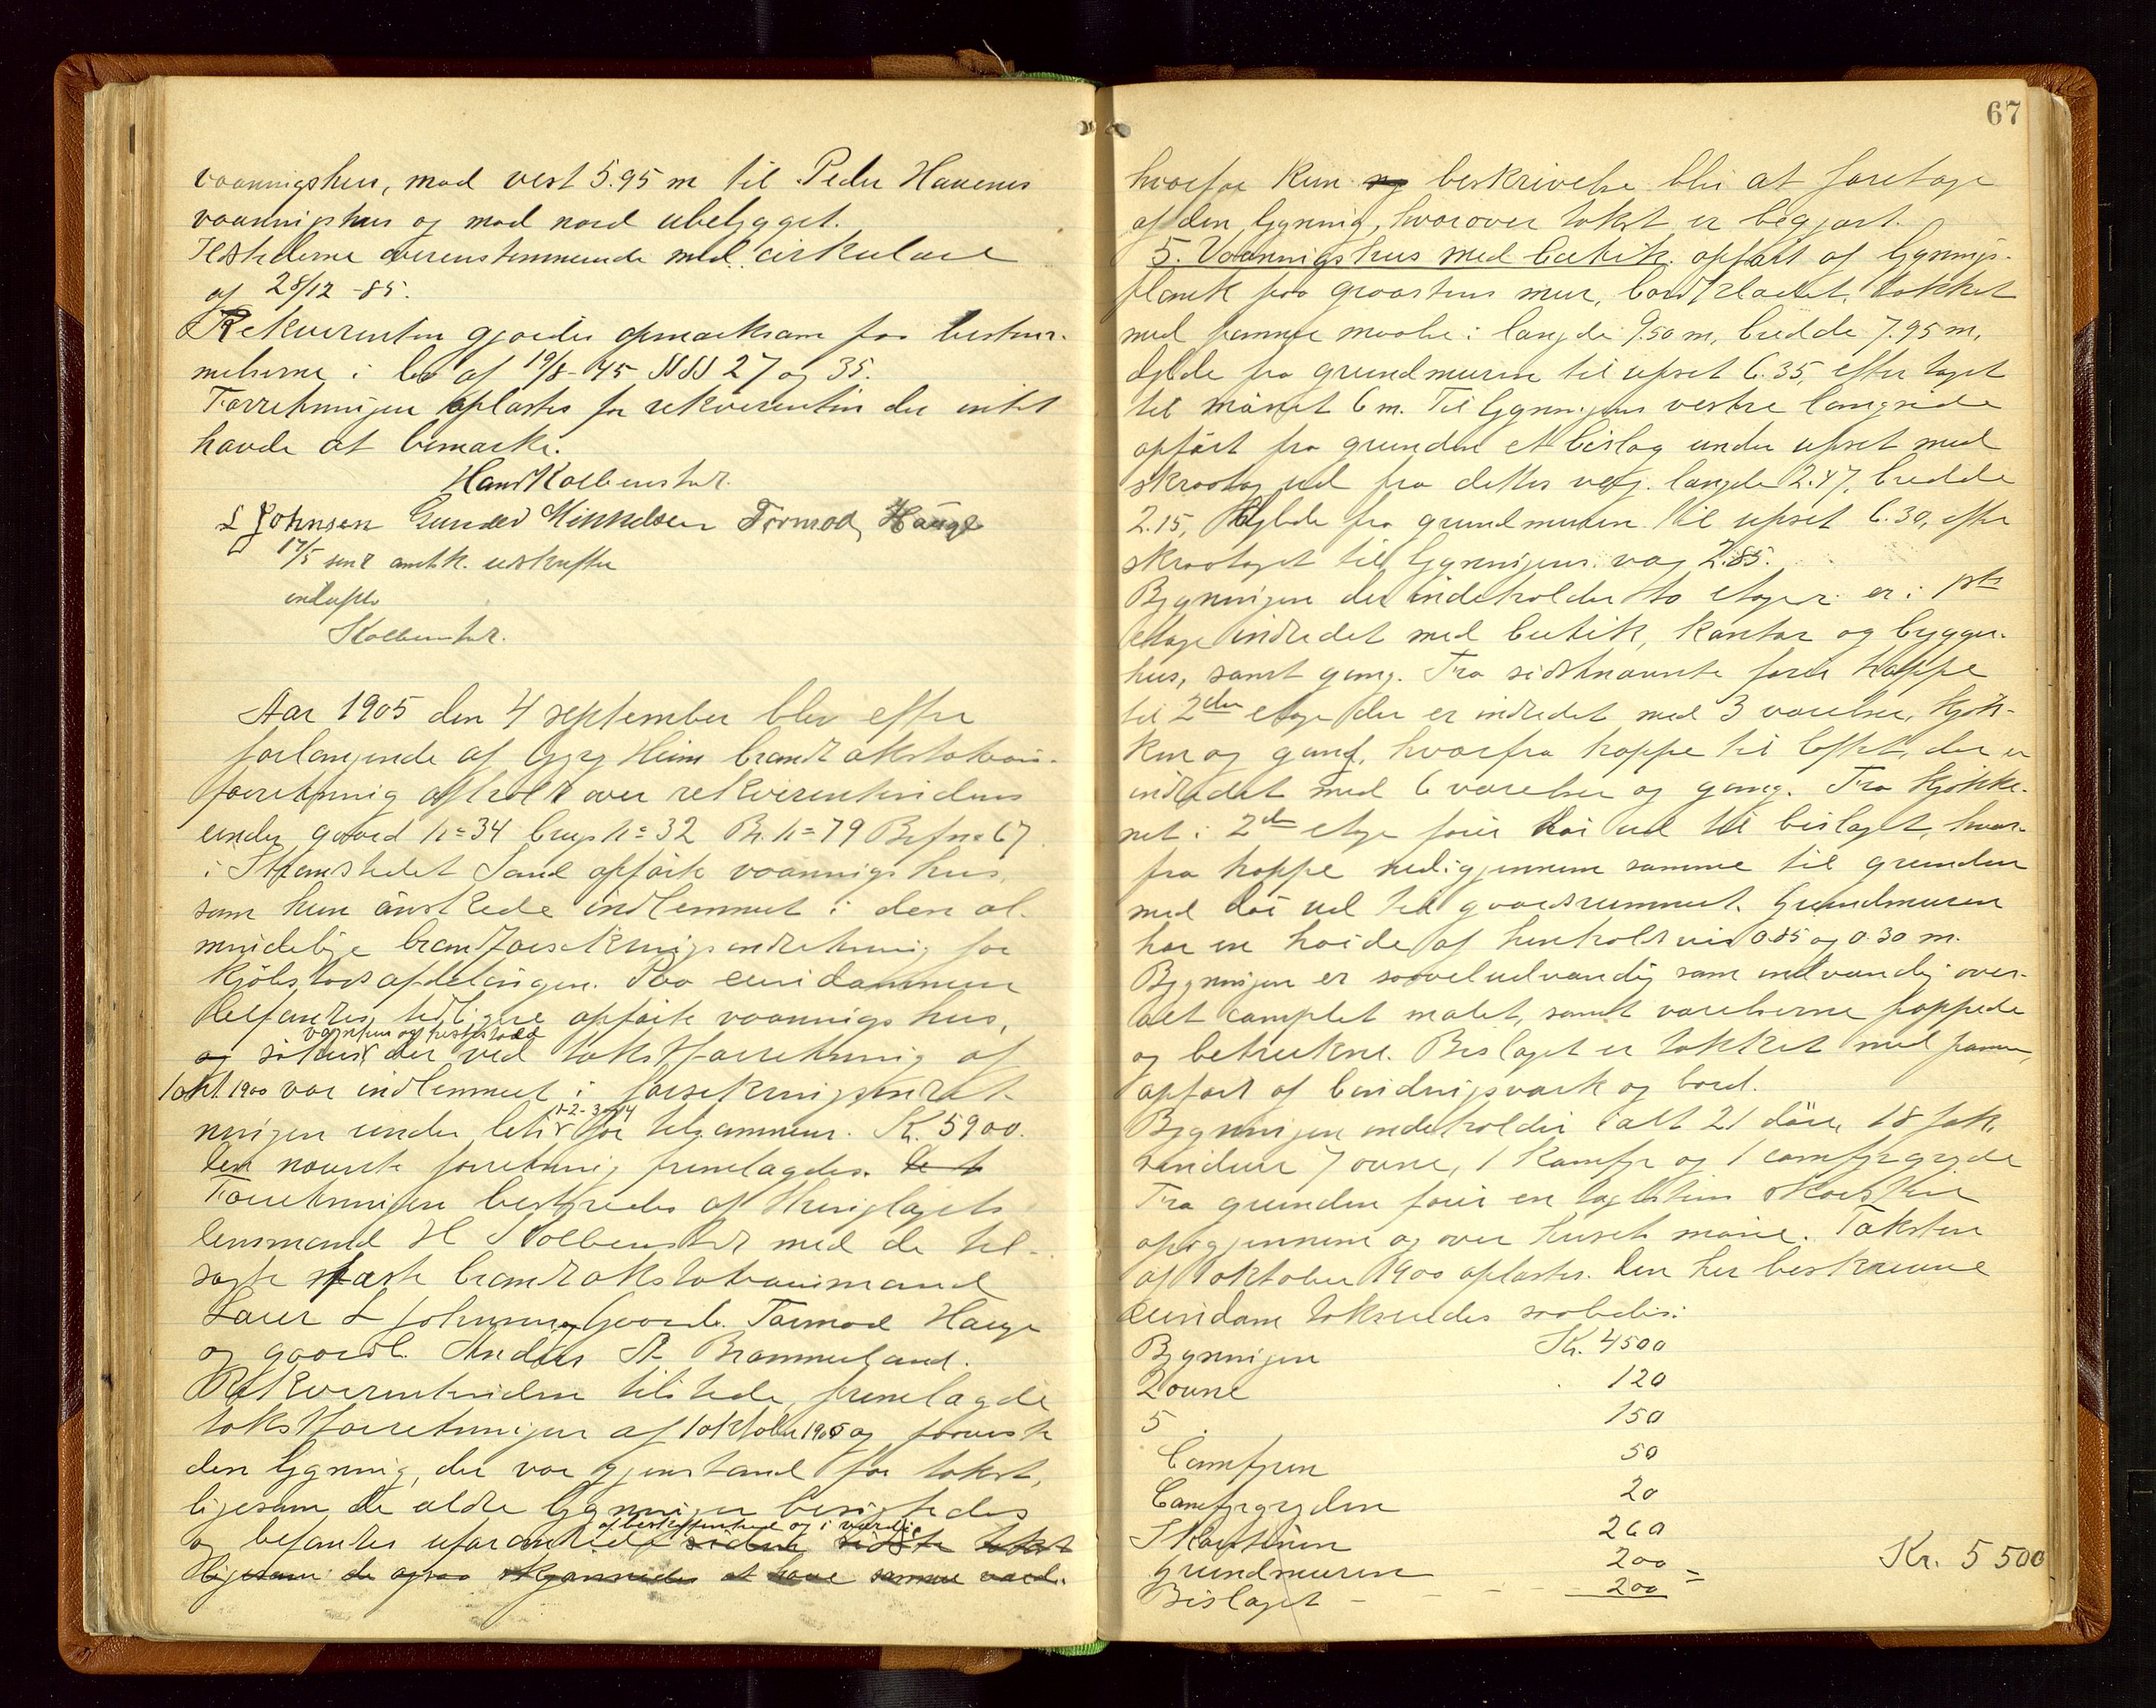 vaanningshus, mod vest 5.95 m til Peder Havenes
vaaningshus og mod nord ubebygget.
Ildstederne overensstemmende med cirkulære
af 28/12 -85.
Rekvirenten gjordes opmerksam paa bestem-
melserne i lov af 19/8-45 §§§ 27 og 35.
Forretningen oplæstes for rekvirenten der intet
havde at bemærke.
Hans Kolbenstvedt.
L Johnsen Gunder Mikkelsen Tormod Hauge
17/5 send amtsk. udskrifter
induplo
Kolbenstvedt.
Aar 1905 den 4 september blev efter
forlangende af Gyry Heim brandtakstations-
forretning afholdt over rekvirentindens
under gaard n= 34 brugs n= 32 Br. n= 79 Brf n= 67
i Strandstedet Sand opførte vaanningshus,
som hun ønskede indlemmet i den al-
mindelige brandforsikringsindretning for
kjøbstadsafdelingen. Paa eiendommen
befandtes tidligere opførte vaanningshus,
vognskur og hestestald
og søhus der ved takstforretning af
1 okt 1900 var indlemmet i forsikringsindret-
1-2-3 og 4
ningen under litr for tilsammen Kr. 5900.
Den nævnte forretning fremlagdes.
Forretningen bestyredes af thinglagets
lensmand H Kolbenstvedt med de til-
sagte faste brandtakstationsmænd
Lars L Johnsen, gaardb. Tormod Hauge
og gaardb. Anders A. Brommeland.
Rekvirentinden tilstede, fremlagde
takstforretningen af 1 oktober 1900 og foreviste
den bygning, der var gjenstand for takst,
ligesom de ældre bygninger besigtedes
af beskaffenhed og i værdi
og befandtes uforandrede siden sidste takst
ligesom de ogsaa skjønnedes at have samme værdi.
67
hvorfor kun ny beskrivelse blir at foretage
af den bygning, hvorover takst er begjært.
5. Vaanningshus med butik. opført af bygnings-
plank paa graastens mur, bordklædet, tækket
med panner maaler i længde 9.50 m, bredde 7.95 m,
høide fra grundmuren til upset 6.35, efter taget
til mønet 6 m. Til bygningens vestre langside
opført fra grunden et bislag under upset med
skraatag ud fra dettes væg. længde 2.47, bredde
2.15, høide fra grundmuren til upset 6.30, efter
skraataget til bygningens væg 2.85.
Bygningen der indeholder to etager er i 1ste
etage indredet med butik, kontor og brygger-
hus, samt gang. Fra sidstnævnte fører trappe
til 2den etage der er indredet med 3 værelser, kjøk-
ken og gang, hvorfra trappe til loftet, der er
indredet med 6 værelser og gang. Fra kjøkke-
net i 2den etage fører dør ud til bislaget, hvor-
fra trappe nedigjennem samme til grunden
med dør ud til gaardsrummet. Grundmuren
har en høide af henholdsvis 0.85 og 0.30 m.
Bygningen er saavel udvendig som indvendig over-
alt complet malet, samt værelserne pappede
og betrukne. Bislaget er tækket med panner,
opført af bindingsværk og bord.
Bygningen indeholder ialt 21 døre, 18 fak
vinduer 7 ovne, 1 kamfyr og 1 camfyrgryde
Fra grunden fører en teglstens skorsten
opigjennem og over husets møne. Taksten
af 1 oktober 1900 oplæstes. Den her beskrevne
eiendom takseredes saaledes:
Bygningen Kr. 4500
2 ovne 120
5 „ 150
Camfyren 50
Camfyrgryden 20
Skorstenen 260
Grundmuren 200
Bislaget - - - 200 = Kr. 5500